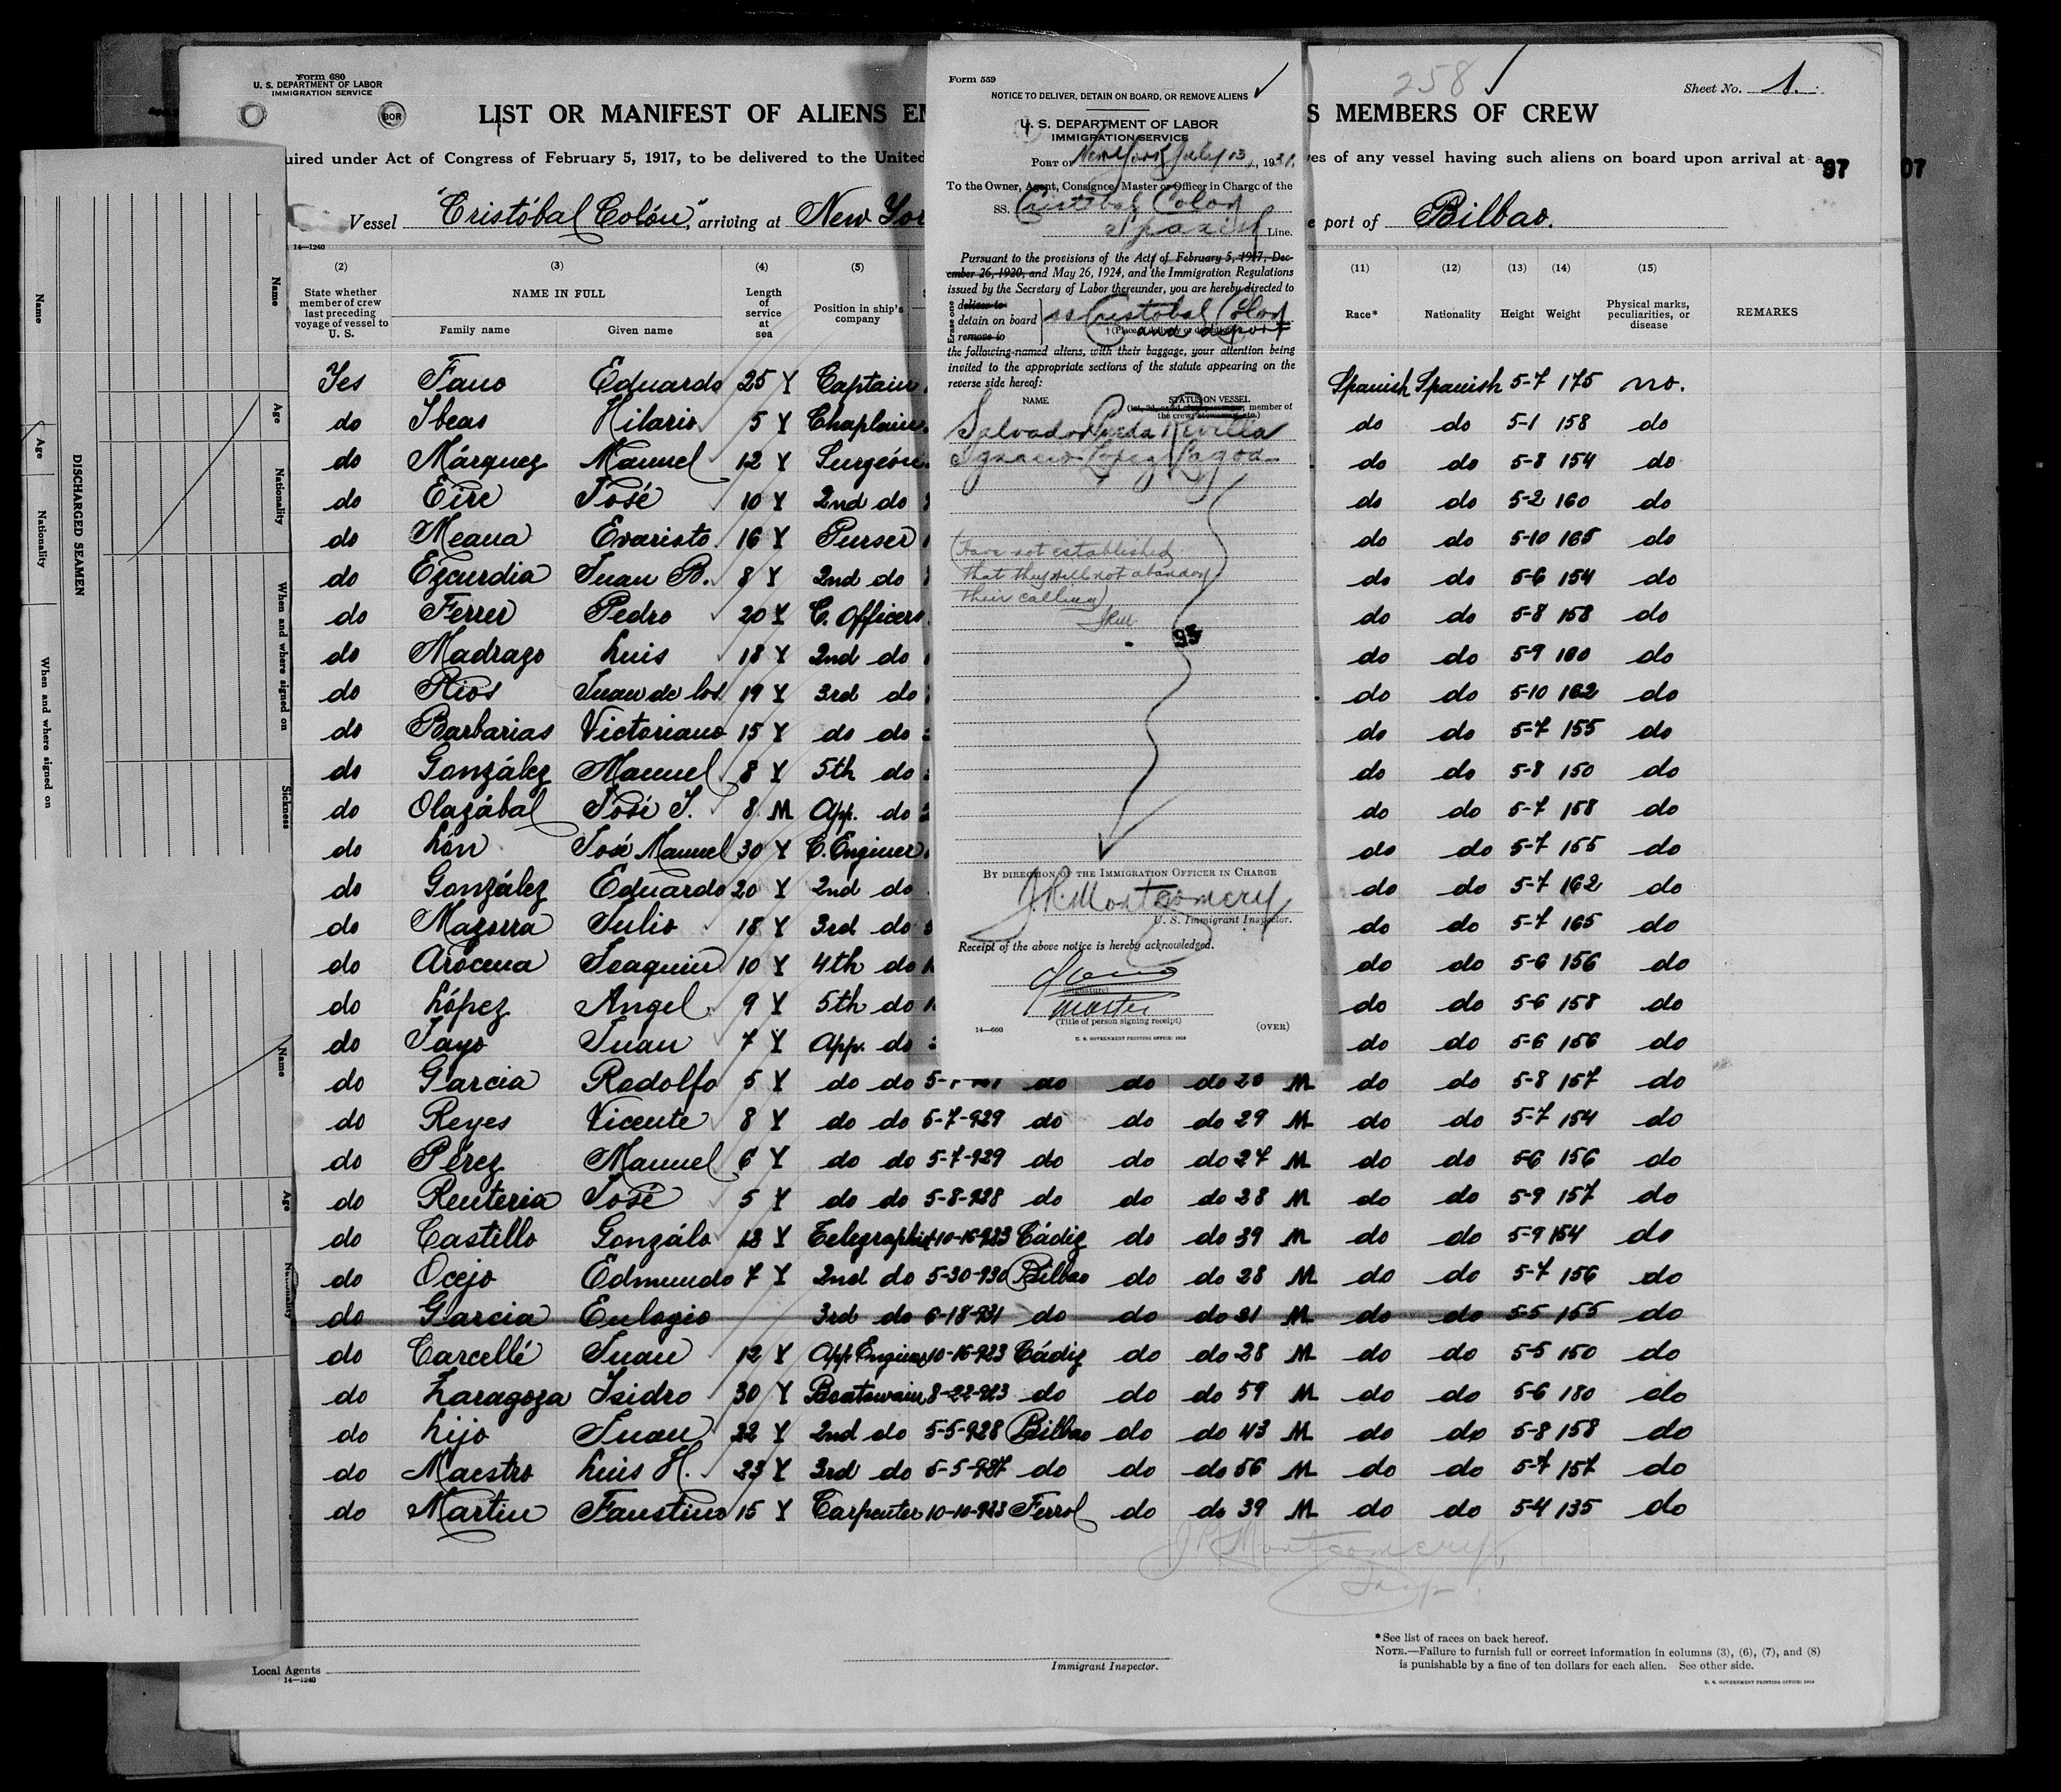 Form 680
U. S. DEPARTMENT OF LABOR
IMMIGRATION SERVICE
BOR
258
Sheet No. 1.
LIST OR MANIFEST OF ALIENS EM
S MEMBERS OF CREW
uired under Act of Congress of February 5, 1917, to be delivered to the United
ves of any vessel having such aliens on board upon arrival at a
97
07
Vessel "Cristóbal Colón", arriving at New Yor
e port of Bilbao.
14—1240
(2) (3) (4) (5) (11) (12) (13) (14) (15)
State whether member of crew last preceding voyage of vessel to U. S.
NAME IN FULL
Family name Given name
Length of service at sea
Position in ship's company
Race* Nationality Height Weight Physical marks, peculiarities, or disease REMARKS
Yes Fano Eduardo 25 Y Captain Spanish Spanish 5-7 175 no.
do Ibeas Hilario 5 Y Chaplain do do 5-1 158 do
do Márquez Manuel 12 Y Surgeón do do 5-8 154 do
do Eire José 10 Y 2nd do do do 5-2 160 do
do Meana Evaristo 16 Y Purser do do 5-10 165 do
do Ezcurdia Juan B. 8 Y 2nd do do do 5-6 154 do
do Ferrer Pedro 20 Y C. Officers do do 5-8 158 do
do Madrazo Luis 18 Y 2nd do do do 5-9 160 do
do Rios Juan de los 19 Y 3rd do do do 5-10 162 do
do Barbarias Victoriano 15 Y do do do do 5-7 155 do
do González Manuel 8 Y 5th do do do 5-8 150 do
do Olazábal José J. 8 M App. do do do 5-7 158 do
do Lón José Manuel 30 Y C. Enginer do do 5-7 155 do
do González Eduardo 20 Y 2nd do do do 5-7 162 do
do Mazorra Julio 18 Y 3rd do do do 5-7 165 do
do Arocena Joaquin 10 Y 4th do do do 5-6 156 do
do López Angel 9 Y 5th do do do 5-6 158 do
do Jayo Juan 7 Y App. do do do 5-6 156 do
do Garcia Rodolfo 5 Y do do do do do 28 M do do 5-8 157 do
do Reyes Vicente 8 Y do do 5-7-929 do do do 29 M do do 5-7 154 do
do Pérez Manuel 6 Y do do 5-7-929 do do do 27 M do do 5-6 156 do
do Renteria José 5 Y do do 5-8-928 do do do 28 M do do 5-9 157 do
do Castillo Gonzálo 18 Y Telegraphist 10-16-923 Cádiz do do 39 M do do 5-9 154 do
do Ocejo Edmundo 7 Y 2nd do 5-30-930 Bilbao do do 28 M do do 5-7 156 do
do Garcia Eulogio 3rd do 6-18-931 do do do 21 M do do 5-5 155 do
do Carcellé Juan 12 Y App Enginer 10-16-923 Cádiz do do 28 M do do 5-5 150 do
do Zaragoza Isidro 30 Y Boatswain 8-22-923 do do do 59 M do do 5-6 180 do
do Lijo Juan 22 Y 2nd do 5-5-928 Bilbao do do 43 M do do 5-8 158 do
do Maestro Luis H. 23 Y 3rd do 5-5-927 do do do 56 M do do 5-7 157 do
do Martin Faustino 15 Y Carpenter 10-10-923 Ferrol do do 39 M do do 5-4 135 do
J R Montgomery
Insp.
Local Agents
14—1240
Immigrant Inspector.
*See list of races on back hereof.
NOTE.—Failure to furnish full or correct information in columns (3), (6), (7), and (8)
is punishable by a fine of ten dollars for each alien. See other side.
U. S. GOVERNMENT PRINTING OFFICE: 1929
Form 559
NOTICE TO DELIVER, DETAIN ON BOARD, OR REMOVE ALIENS
U. S. DEPARTMENT OF LABOR
IMMIGRATION SERVICE
PORT OF New York July 13, 1931.
To the Owner, Agent, Consignee, Master or Officer in Charge of the
SS. Cristobal Colon
Spanish Line.
Pursuant to the provisions of the Acts of February 5, 1917, Dec-
ember 26, 1920, and May 26, 1924, and the Immigration Regulations
issued by the Secretary of Labor thereunder, you are hereby directed to
Erase one
deliver to
detain on board
remove to
SS Cristobal Colon
and deport
the following-named aliens, with their baggage, your attention being
invited to the appropriate sections of the statute appearing on the
reverse side hereof:
NAME STATUS ON VESSEL
member of
the crew, stowaway, etc.)
Salvador Pineda Revilla
Ignacio López Lagoa
(Have not established
that they will not abandon
their calling)
JRM
95
BY DIRECTION OF THE IMMIGRATION OFFICER IN CHARGE
J.R. Montgomery
U. S. Immigrant Inspector.
Receipt of the above notice is hereby acknowledged.
(Signature)
Master
(Title of person signing receipt)
14—660
(OVER)
U. S. GOVERNMENT PRINTING OFFICE: 1929
DISCHARGED SEAMEN
Name Age Nationality When and where signed on
Name Age Nationality When and where signed on Sickness
Name Age Nationality